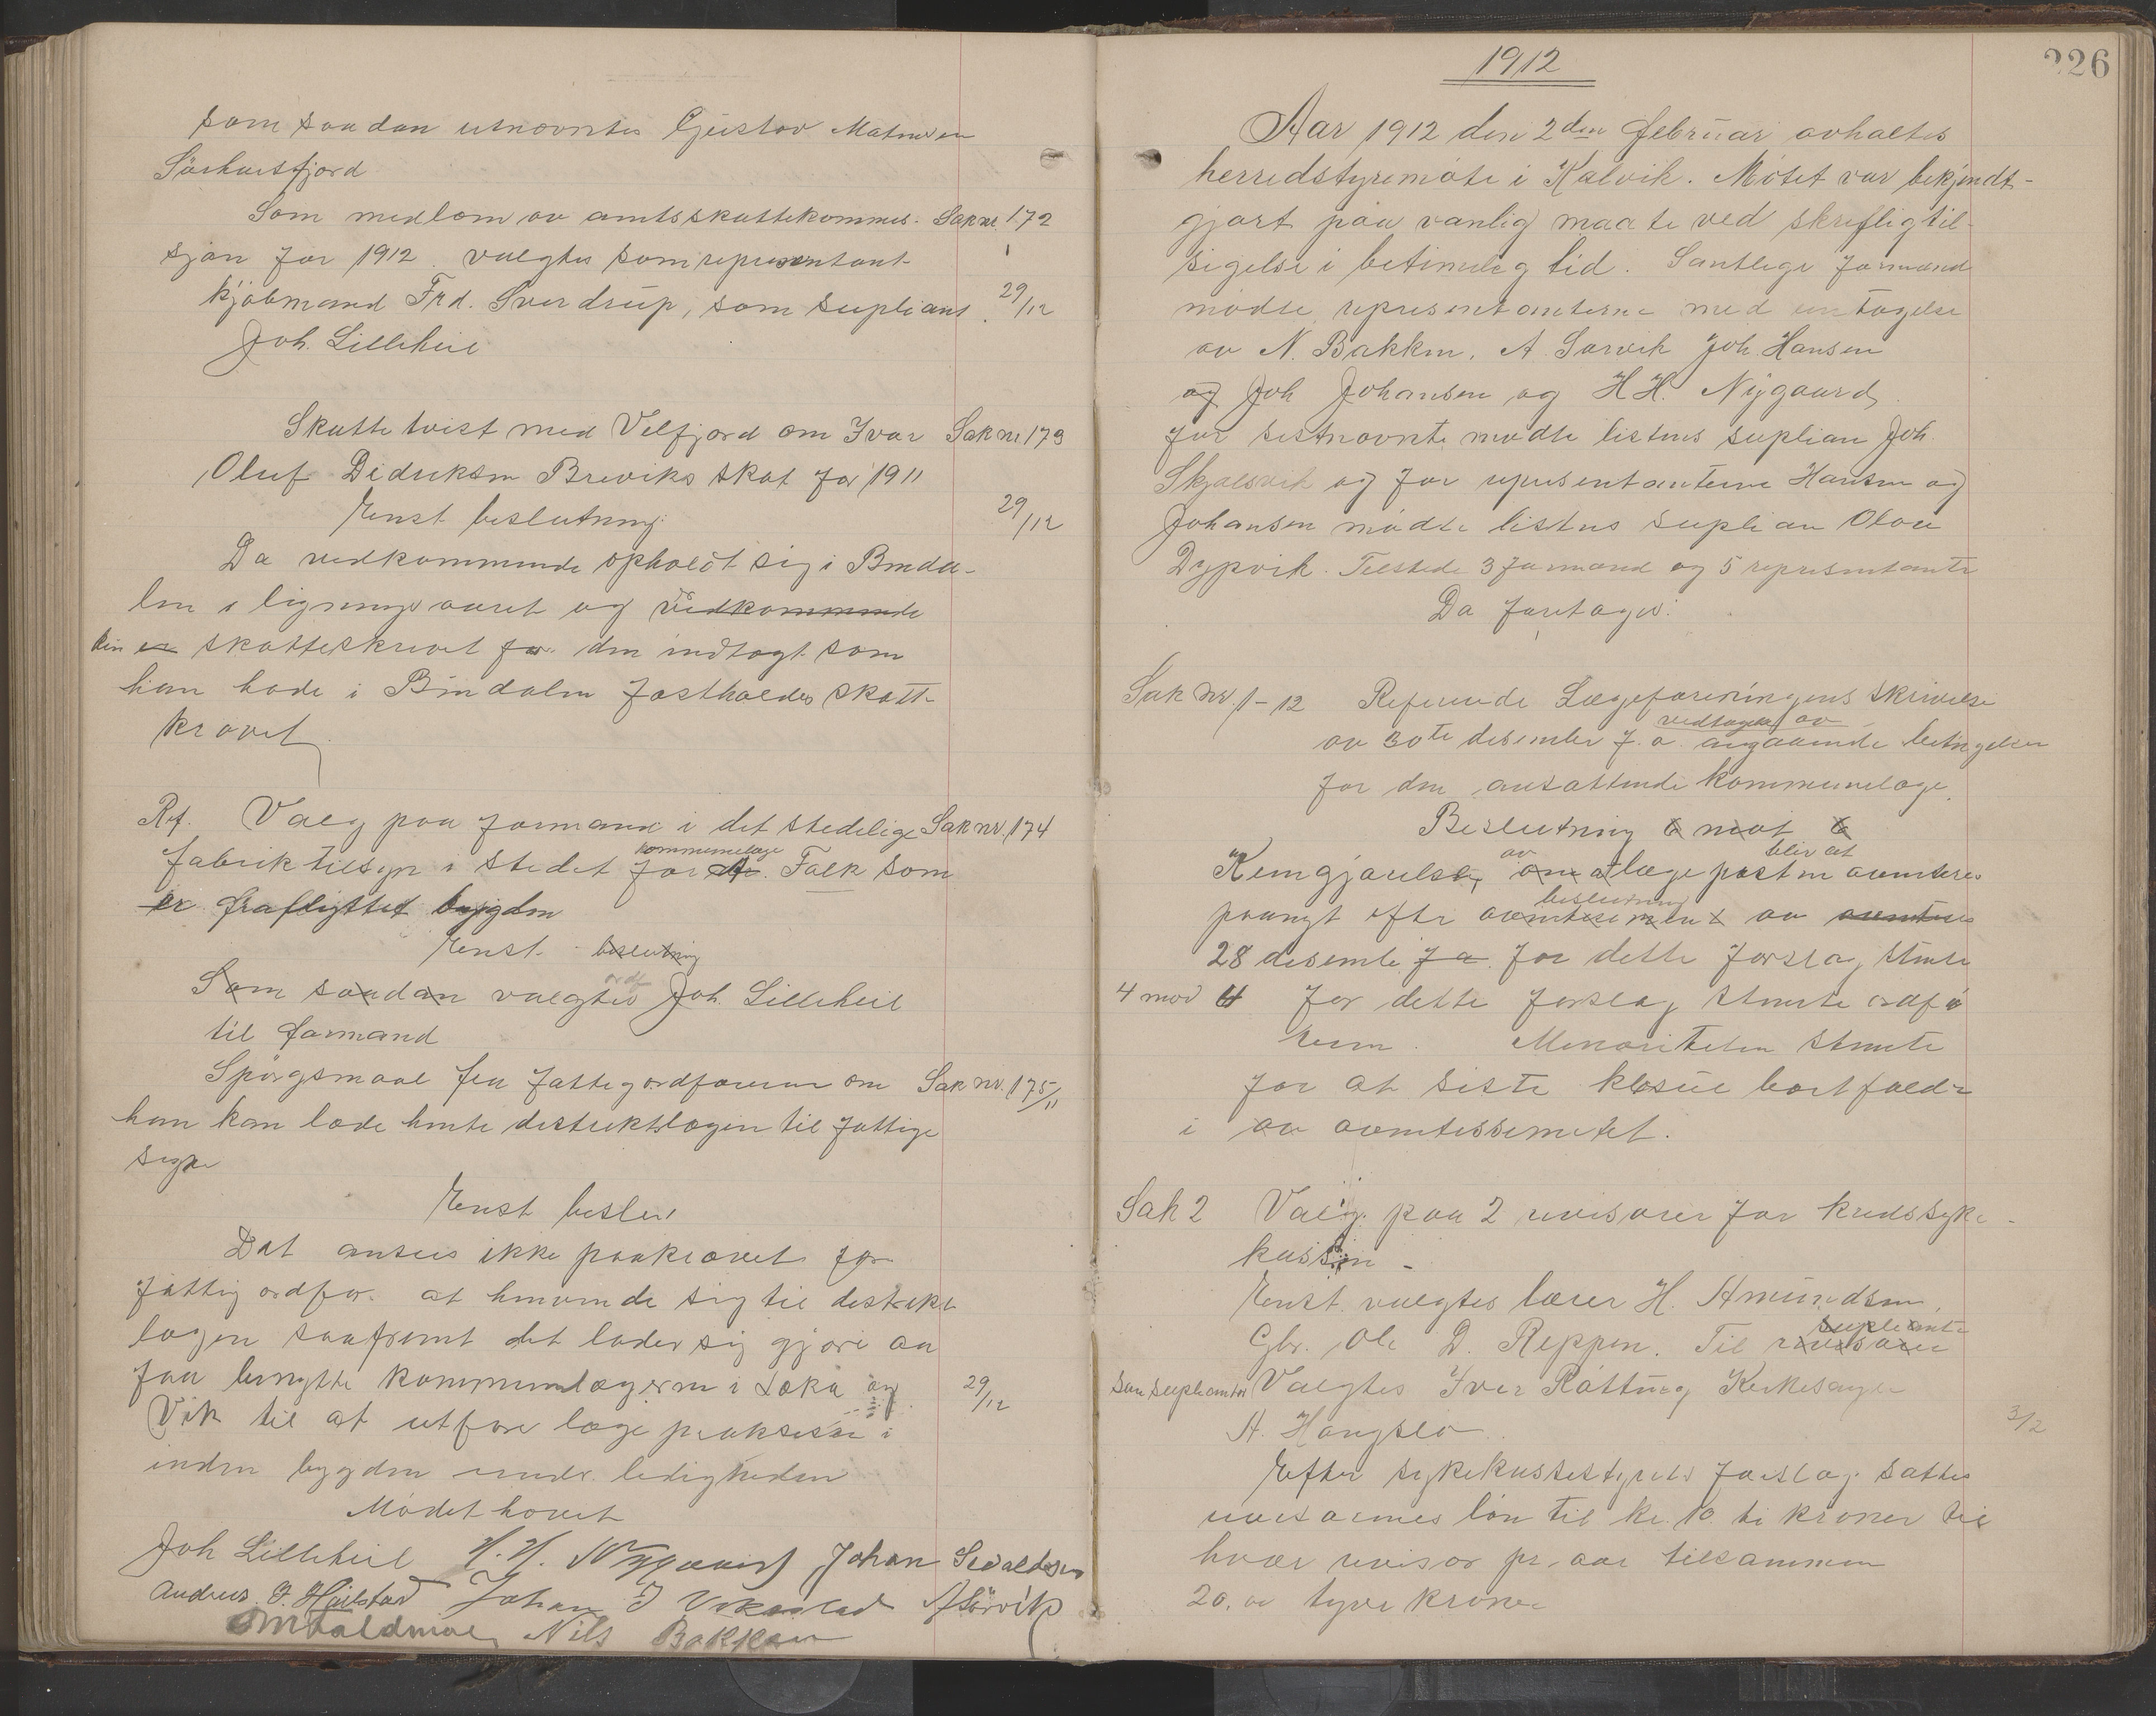 som saadan utnævntes Gustav Matnesen
Sörhorsfjord
Som medlem av amtsskattekommis- Sak nr. 172
sjon for 1912 valgtes som representant
kjöbmand Frd. Sverdrup, som supliant 29/12
Joh. Lilleheil
Skatte tvist med Velfjord om Ivar Sak nr 173
Oluf Didriksen Breviks skat for 1911
Enst beslutning: 29/12
Da vedkommende opholdt sig i Binda-
len i lignings aaret og vedkommende
er skatteskrevet for den indtægt som
han hade i Bindalen fastholdes skatte
kravet
Ref. Valg paa formann i det stedelige Sak nr. 174
kommunelæge
fabriktilsyn i stedet for dr. Falk som
er fraflyttet bygden
Enst beslutning
ordf
Som saadan valgtes Joh. Lilleheil
til formand
Spörgsmaal fra fattigordföreren om Sak nr. 175/11
han kan lade hente distriktslægen til fattige
syke
Enst beslu
Det ansees ikke paakrævet for
fattig ordför. at henvende sig til distrikt
lægen saafremt det lader sig gjöre aa
faa benytte kommunelægerne i Leka og 29/12
Vik til at utföre læge praksis i
inden bygden under ledigheden
Mödet hævet
Joh Lilleheil H. H. Nygaard Johan Sevaldsen
Andreas J. Heilstad Johan J Vikestad A Sörvik
Nils Bakken
226
1912
Aar 1912 den 2den februar avholtes
herredstyremöte i Kalvik. Mötet var bekjendt-
gjort paa vanlig maate ved skreflig til-
sigelse i betimelig tid. Samtlege formænd
mödte, representanterne med untagelse
av N. Bakken, A. Sørvik Joh. Hansen
og Joh Johansen og H. H. Nygaard,
for sistnævnte mödte listens suplian Joh.
Skjælsvik og for representanterne Hansen og
Johansen mödte listens suplian Olav
Dypvik. Tilstede 3 formænd og 5 representante
Da foretages:
Sak nr. 1-12 Referende Lægeforeningens skrivelse
vedtagelse av
av 30te desember f. a. angaaende betingelser
for den ansættende kommunelæge.
Beslutning 6 mot 6
av blir at
Kungjörelse, om at lægeposten aventeres
beslutning
paanyt efter avertisement av aventeres
28 desembe f a. for dette forslag stemte
4 mod 4 for dette forslag stemte ordfö
reren. Menoriteten stemte
for at siste klosul bortfalde
i av avertissemetet.
Sak 2 Valg paa 2 revisorer for kredssyke-
kassen -
Enst. valgtes lærer H. Amundsen,
suplianter
Gbr. Ole D. Reppen. Til revisorer
som suplianter Valgtes Iver Råtting Kirkesanger
A. Hongslo 3/2
Efter sykekassestyrets forslag sattes
revisorenes lön til kr. 10. ti kroner til
hver revisor pr. aar tilsammen
20.00 tyve kroner